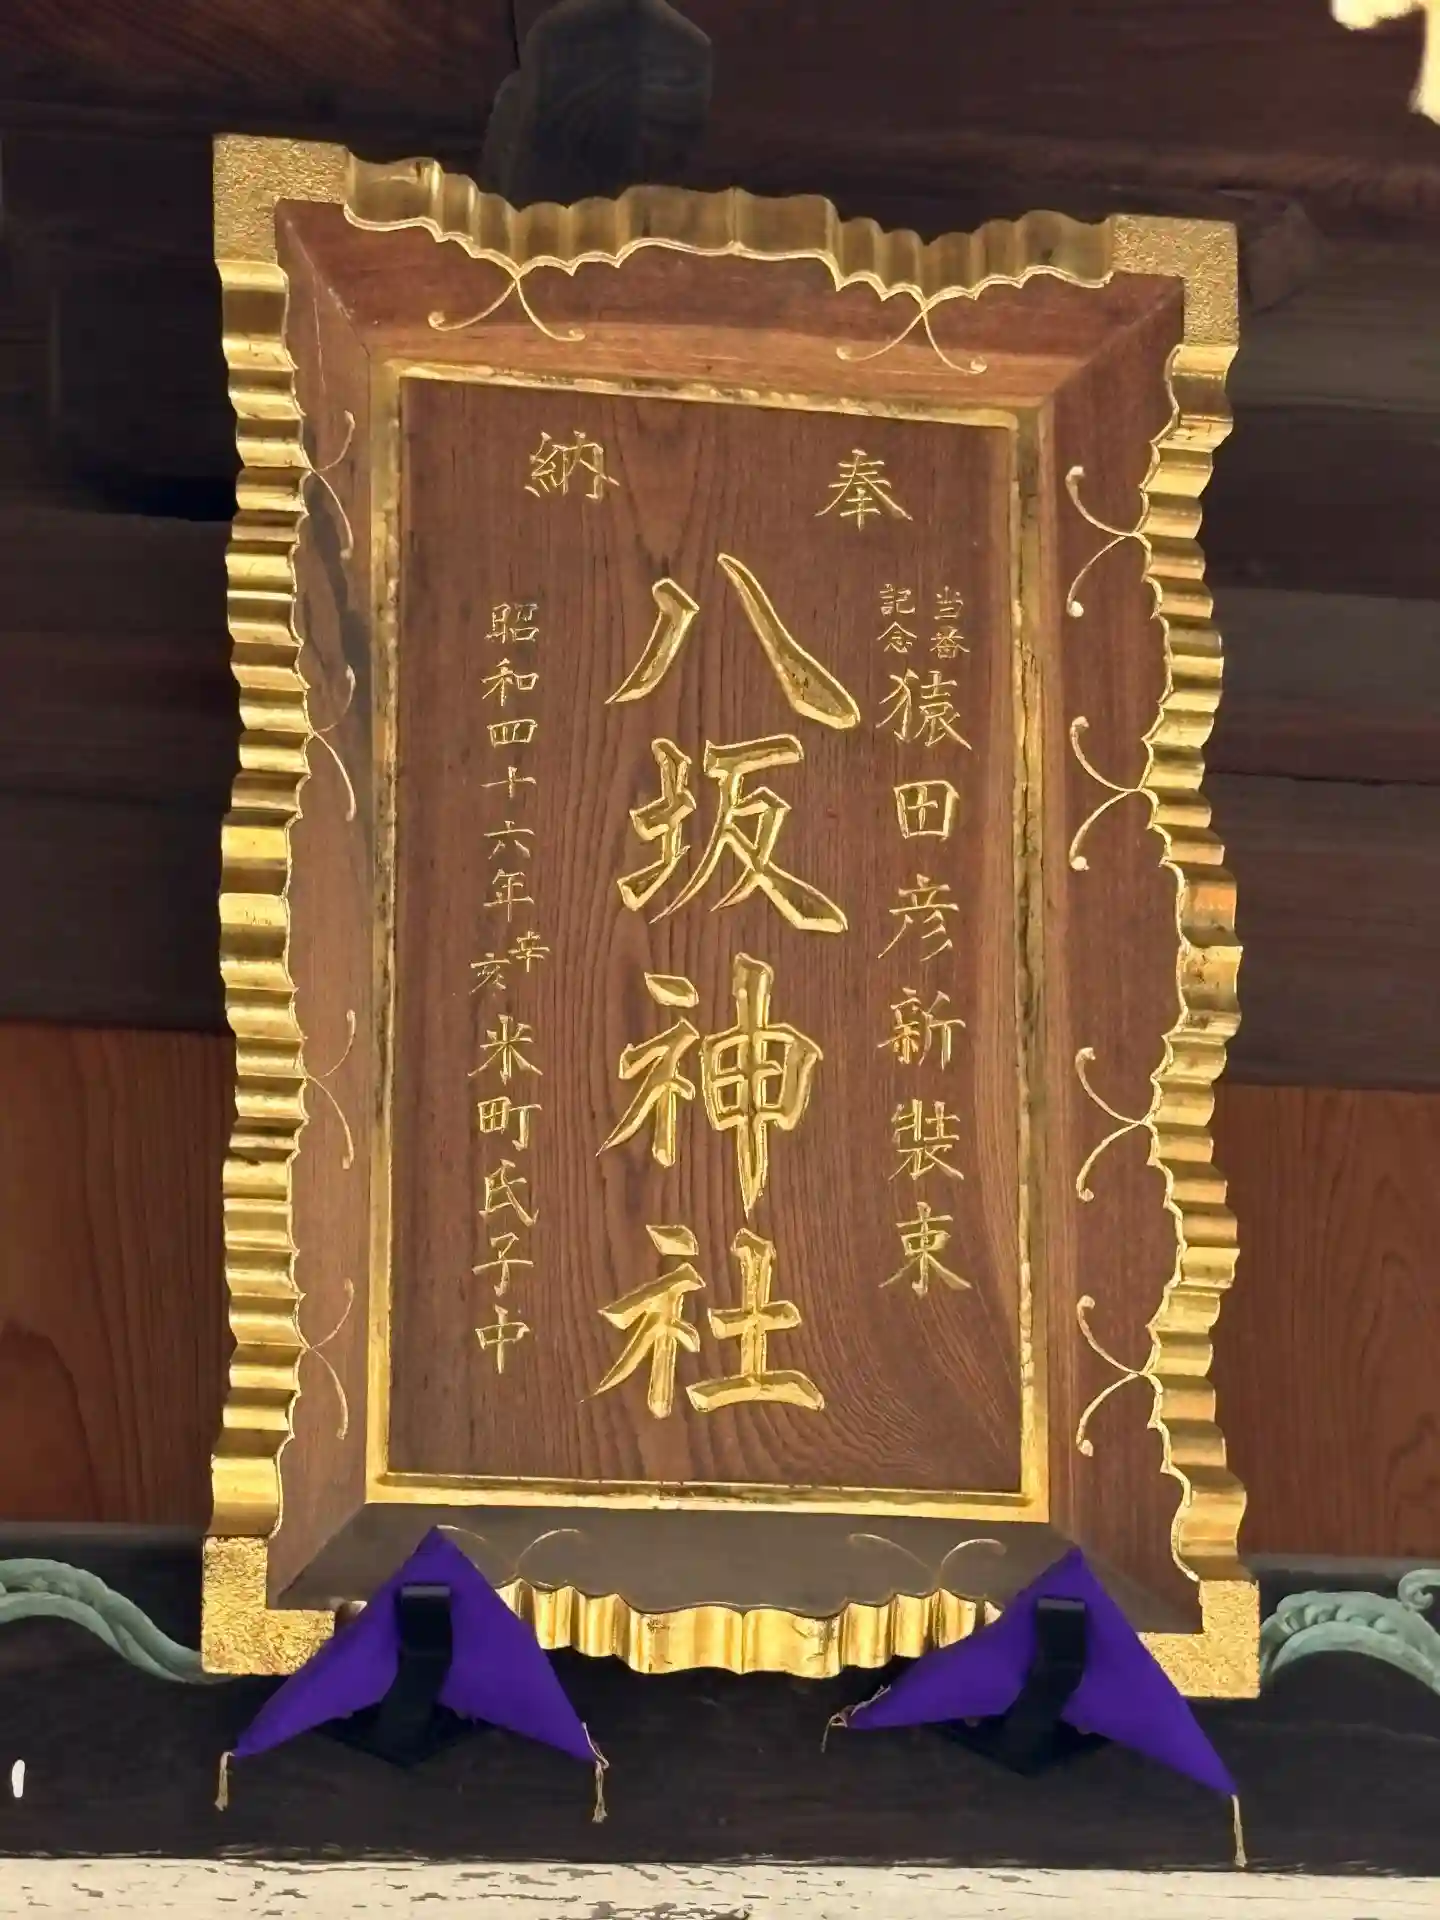 奉納
当番記念猿田彦新装束
八坂神社
昭和四十六年辛亥米町氏子中